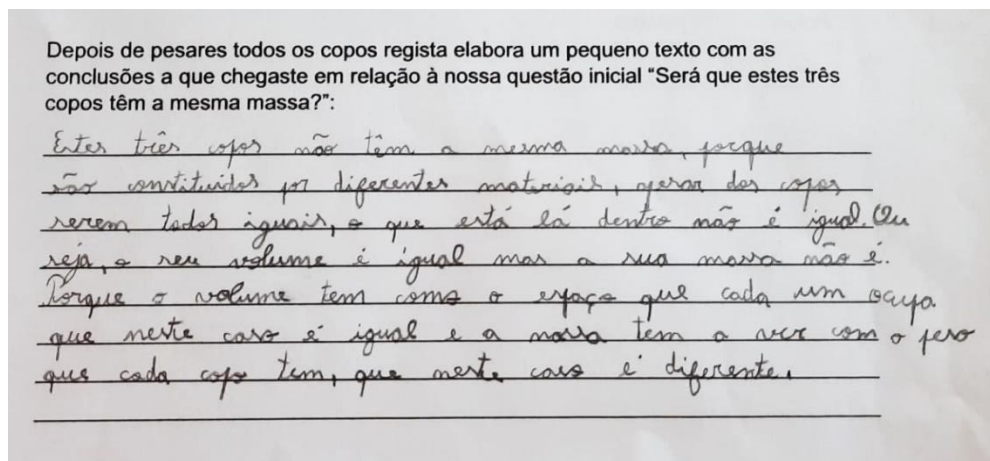 Depois de pesares todos os copos regista elabora um pequeno texto com as
conclusões a que chegaste em relação à nossa questão inicial “Será que estes três
copos têm a mesma massa?”:
Estes três copos não têm a mesma massa, porque
são constituídos por diferentes materiais, apesar dos copos
serem todos iguais, o que está lá dentro não é igual. Ou
seja, o seu volume é igual mas a sua massa não é.
Porque o volume tem como o espaço que cada um ocupa
que neste caso é igual e a massa tem a ver com o peso
que cada copo tem, que neste caso é diferente.